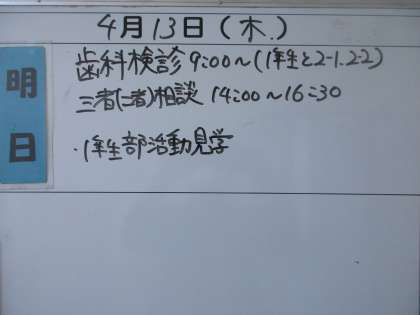 4月13日(木.)
明日
歯科検診 9:00~(1年生と2-1.2-2)
三者(二者)相談 14:00~16:30
・1年生部活動見学